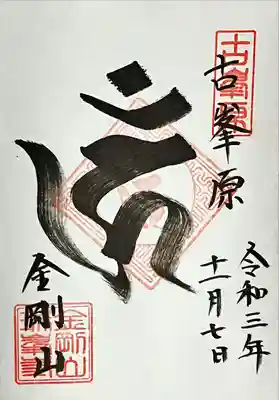 古峯原
古峯原
令和三年
十一月七日
金剛山
金剛山